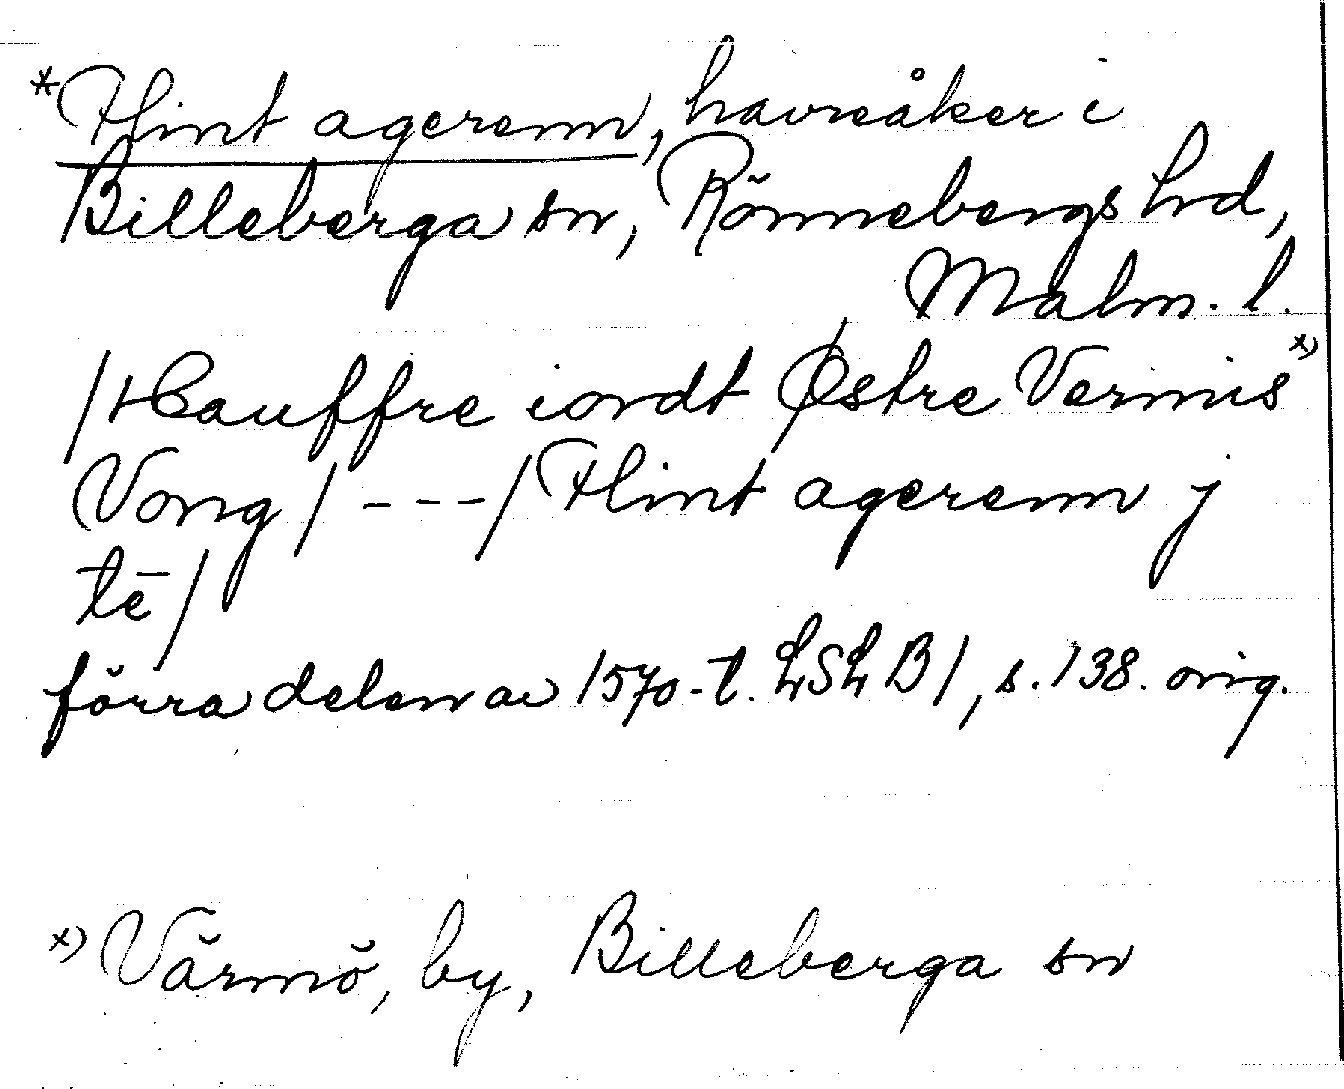 *Flint agerenn, havreåker i
Billeberga sn, Rönnebergs hd,
Malm. l.
/Hauffre iordt Østre Vermis x)
Vong/ - - - / Flint agerenn j
tē/
förra delen av 1570-t. LSLB1, s. 138. orig.
x) Värmö, by, Billeberga sn